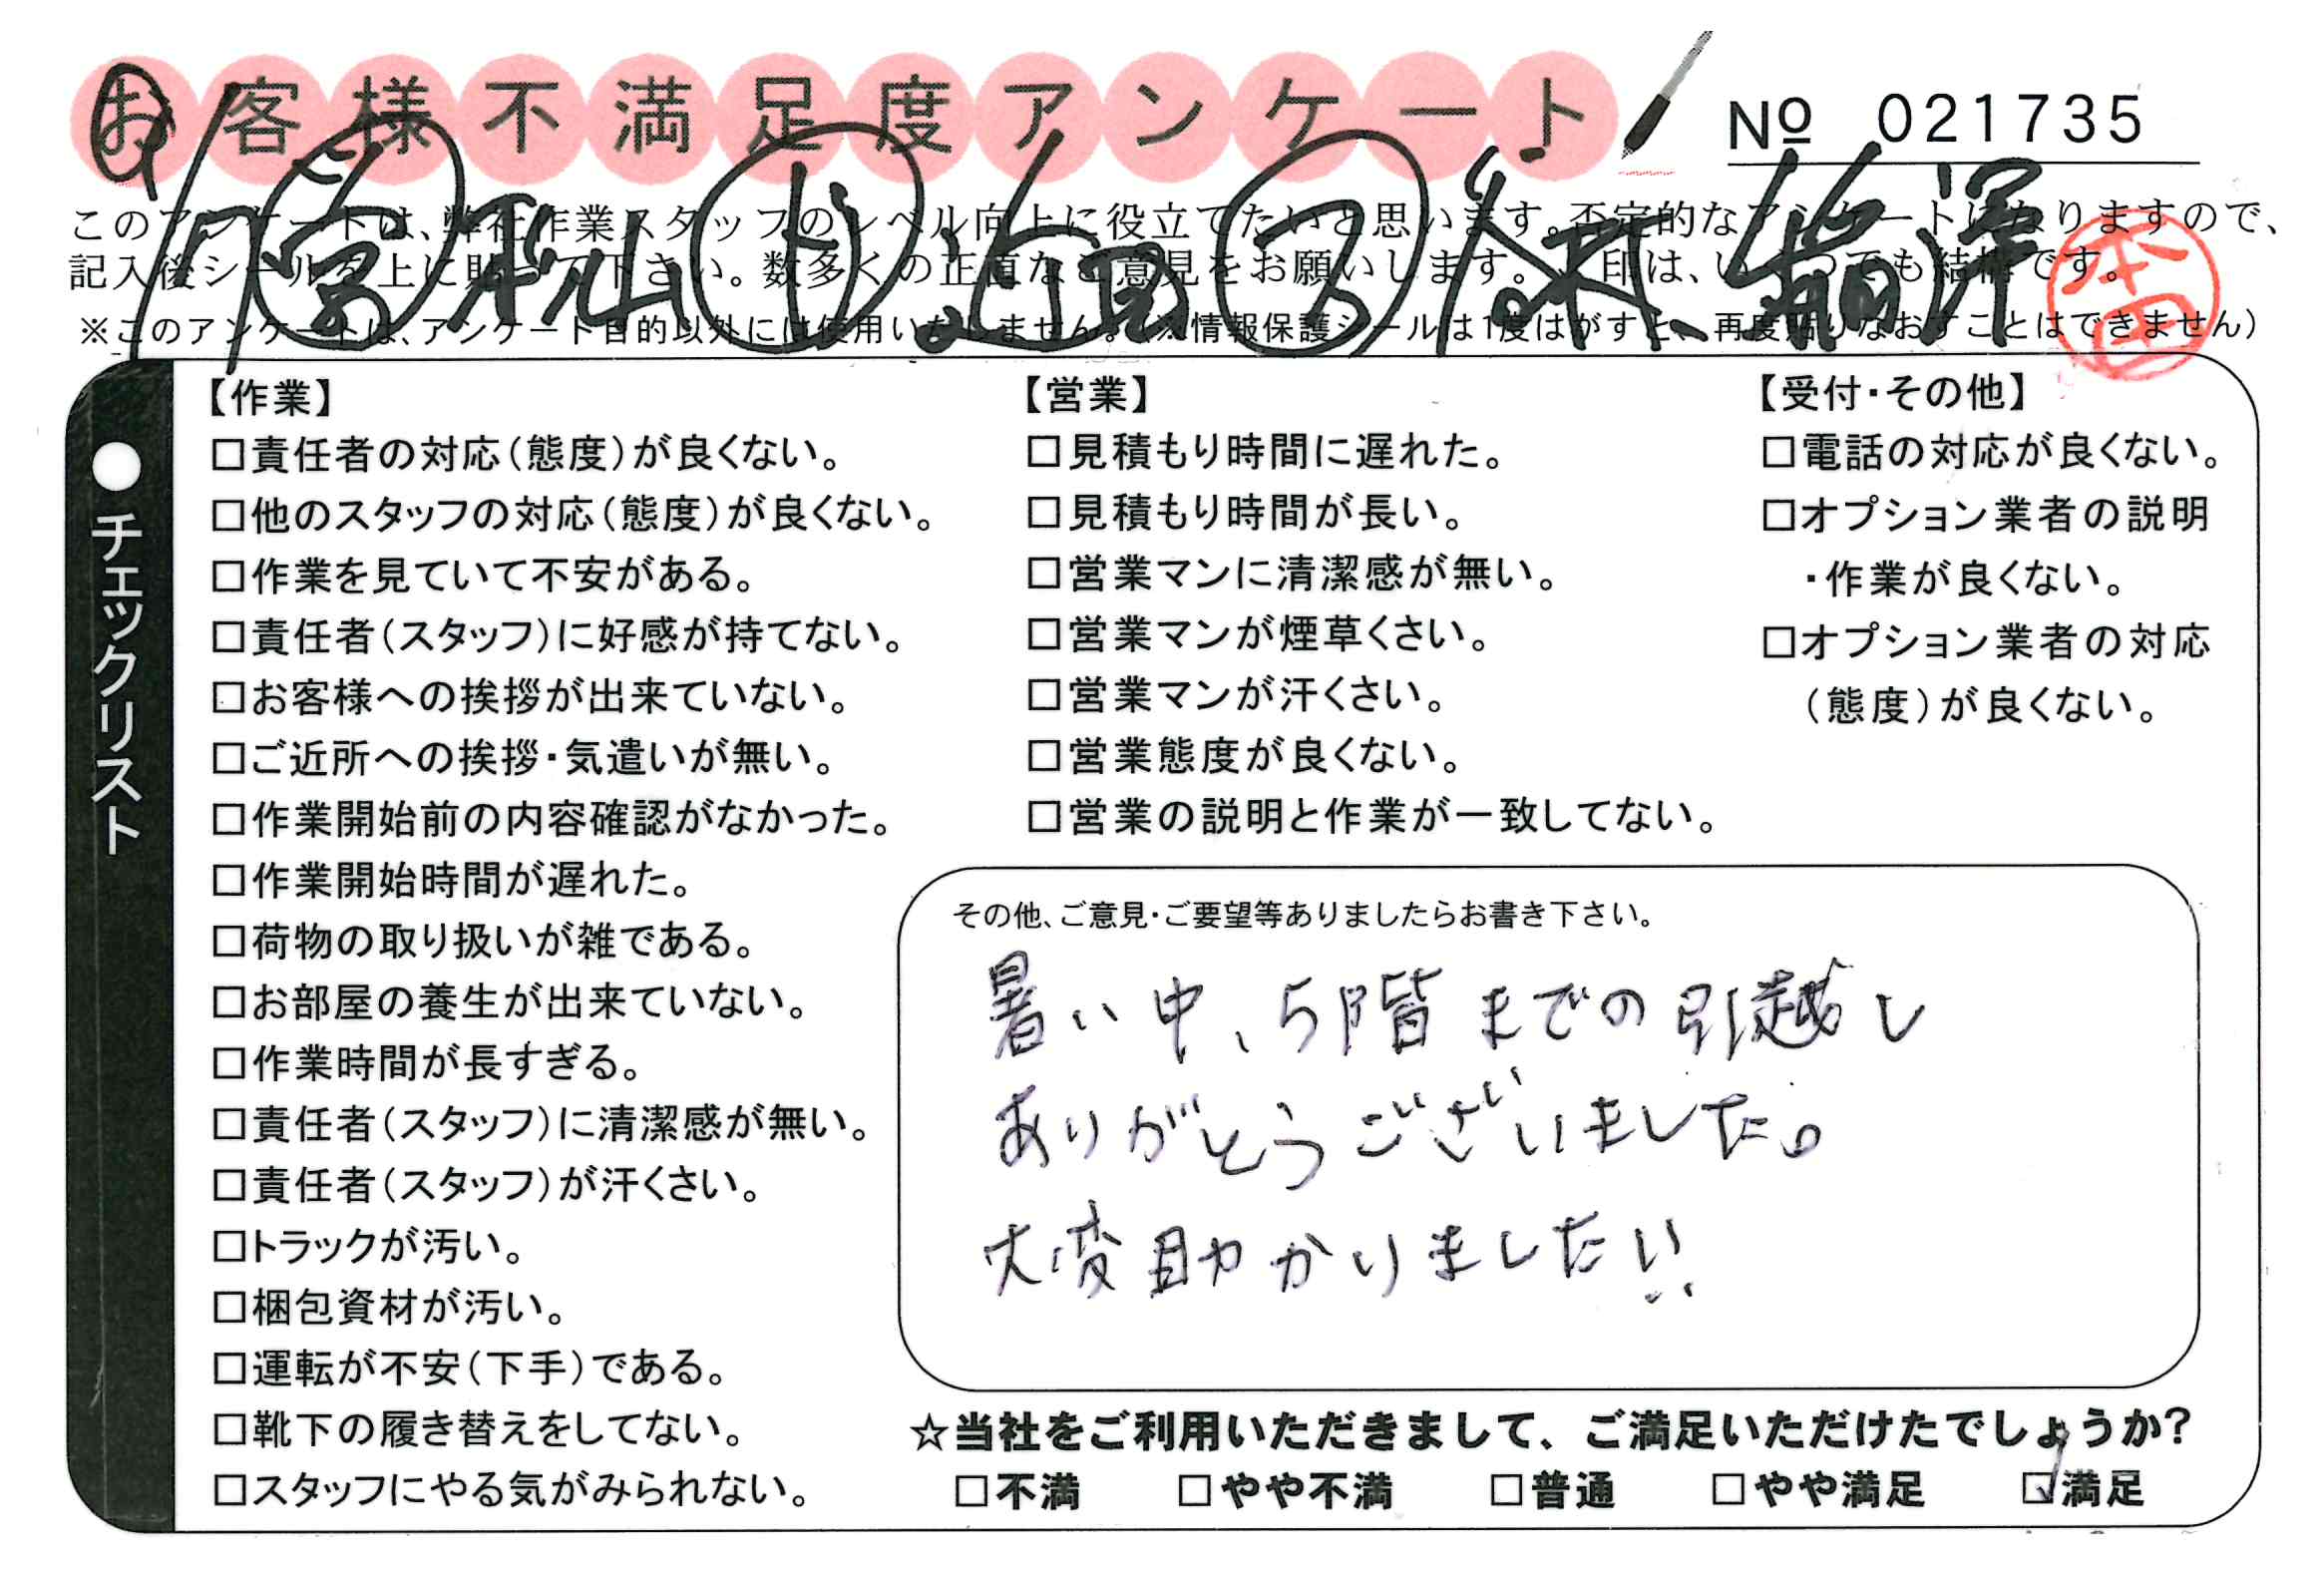 お客様不満足度アンケート
№ 021735
このアンケートは、弊社作業スタッフのレベル向上に役立てたいと思います。否定的なアンケートになりますので、
記入後シールを上に貼って下さい。数多くの正直なご意見をお願いします。 印は、いくつでも結構です。
※このアンケートは、アンケート目的以外には使用いたしません。(※情報保護シールは1度はがすと、再度貼りなおすことはできません)
本田
●チェックリスト
【作業】
□責任者の対応(態度)が良くない。
□他のスタッフの対応(態度)が良くない。
□作業を見ていて不安がある。
□責任者(スタッフ)に好感が持てない。
□お客様への挨拶が出来ていない。
□ご近所への挨拶・気遣いが無い。
□作業開始前の内容確認がなかった。
□作業開始時間が遅れた。
□荷物の取り扱いが雑である。
□お部屋の養生が出来ていない。
□作業時間が長すぎる。
□責任者(スタッフ)に清潔感が無い。
□責任者(スタッフ)が汗くさい。
□トラックが汚い。
□梱包資材が汚い。
□運転が不安(下手)である。
□靴下の履き替えをしてない。
□スタッフにやる気がみられない。
【営業】
□見積もり時間に遅れた。
□見積もり時間が長い。
□営業マンに清潔感が無い。
□営業マンが煙草くさい。
□営業マンが汗くさい。
□営業態度が良くない。
□営業の説明と作業が一致してない。
【受付・その他】
□電話の対応が良くない。
□オプション業者の説明
・作業が良くない。
□オプション業者の対応
(態度)が良くない。
その他、ご意見・ご要望等ありましたらお書き下さい。
暑い中、5階までの引越し
ありがとうございました。
大変助かりました!!
☆当社をご利用いただきまして、ご満足いただけたでしょうか?
□不満 □やや不満 □普通 □やや満足 ☑満足